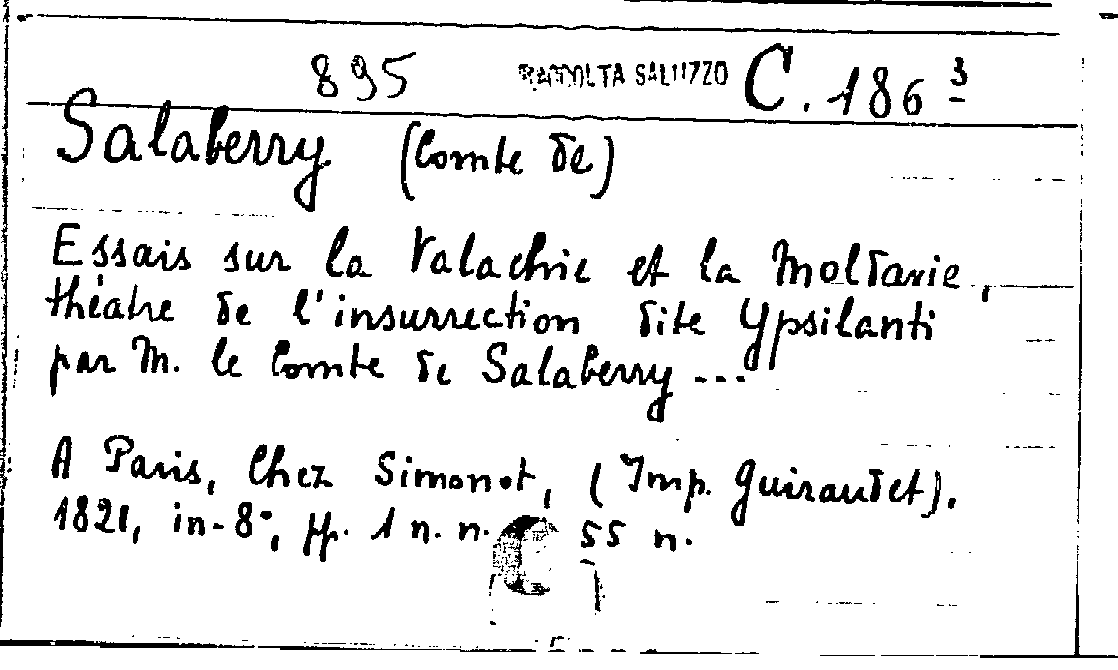 895 RACCOLTA SALUZZO C. 186 3
Salaberry (Comte de)
Essais sur la Valachie et la Moldavie,
théatre de l'insurrection dite Ypsilanti
par M. le Comte de Salaberry ...
A Paris, Chez Simonot, (Imp. Guiraudet).
1821, in-8°, pp. 1 n. n. 55 n.